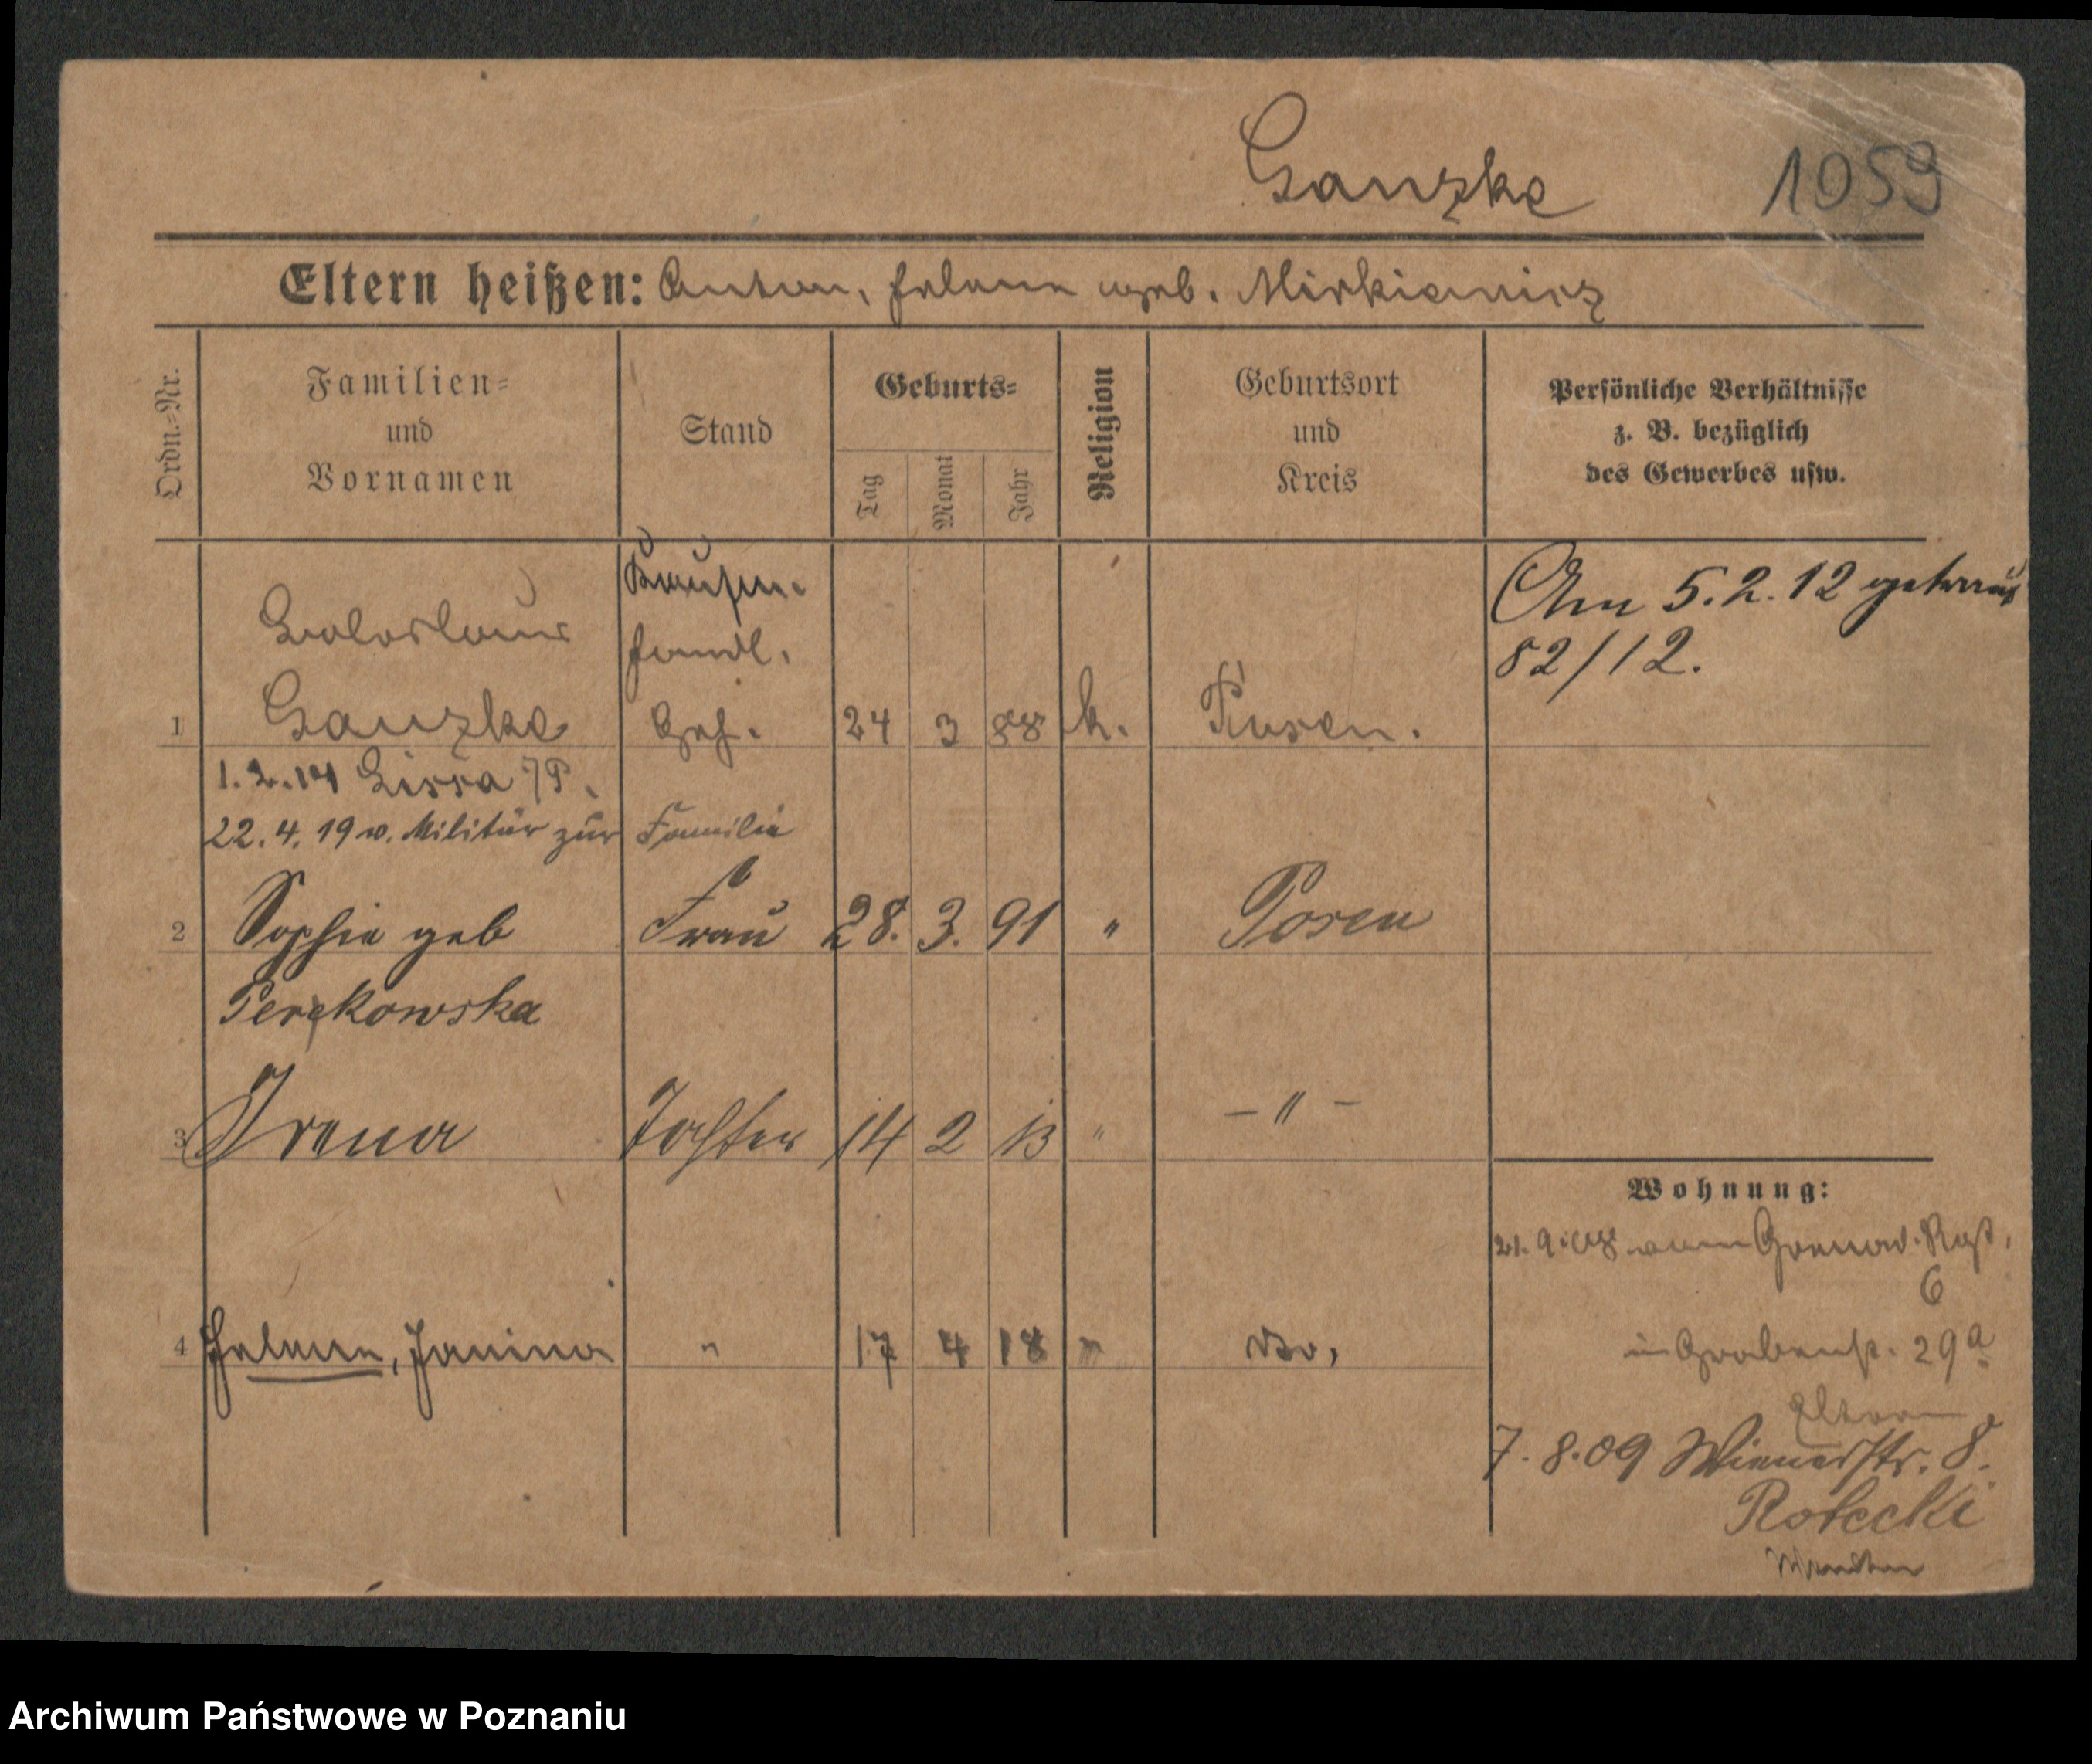 Ganzke 1059
Eltern heißen: Anton, Helene geb. Mirkiewicz
Ordn.-Nr.
Familien-
und
Vornamen
Stand
Geburts-
Tag
Monat
Jahr
Religion
Geburtsort
und
Kreis
Persönliche Verhältnisse
z. B. bezüglich
des Gewerbes usw.
Am 5.2.12 getraut
82/12.
handl.
1 Ganzke Geh. 24 3 88 k. Posen.
1.2.14 Lissa
22.4.19 v. Militär zur Familie
2 Sophie geb Frau 28. 3. 91 " Posen
Perekowska
3 Irena Tochter 14 2 13 " - " -
Wohnung:
21.9. vom Grenad. Rgt.
6
4 Helene, Janina " 17 4 18 " do.
in Grabenstr. 29a
Eltern
7.8.09 Wienerstr. 8.
Rotecki